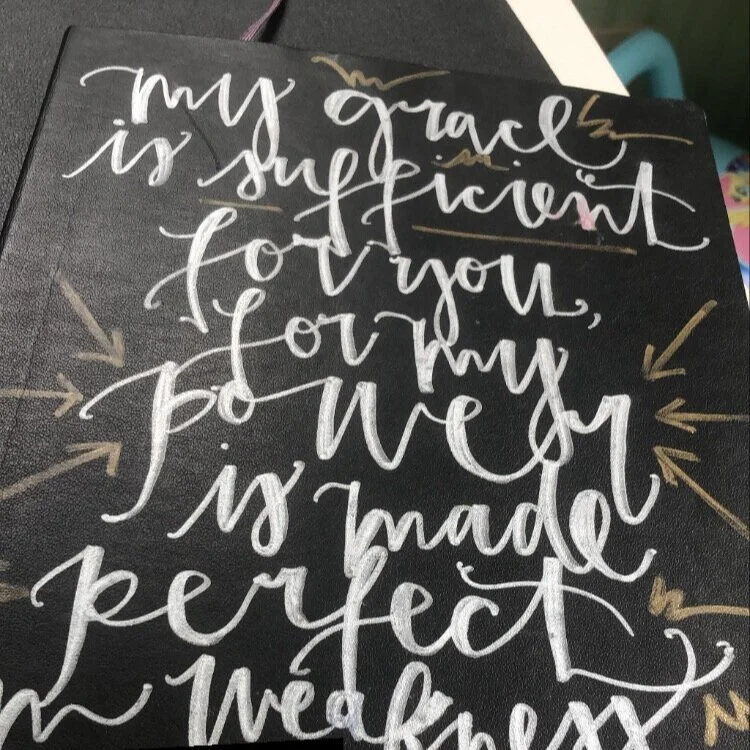 my grace
is sufficient
for you,
for my
power
is made
perfect
in weakness